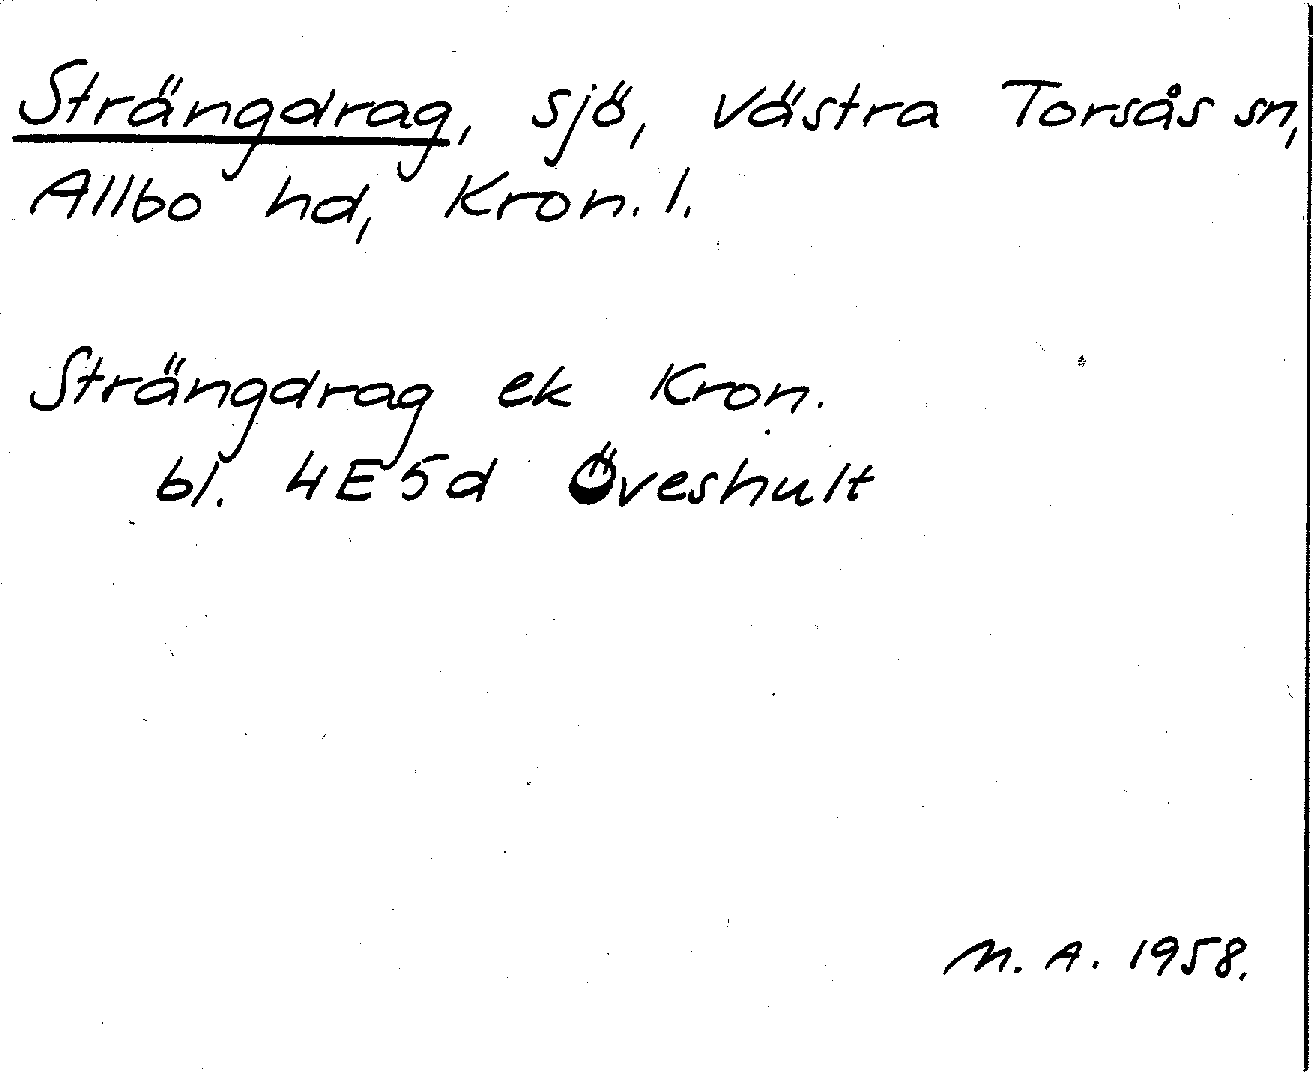 Strängdrag, sjö, Västra Torsås sn,
Allbo hd, Kron. l.
Strängdrag ek Kron.
bl. 4E5d Öveshult
M. A. 1958.